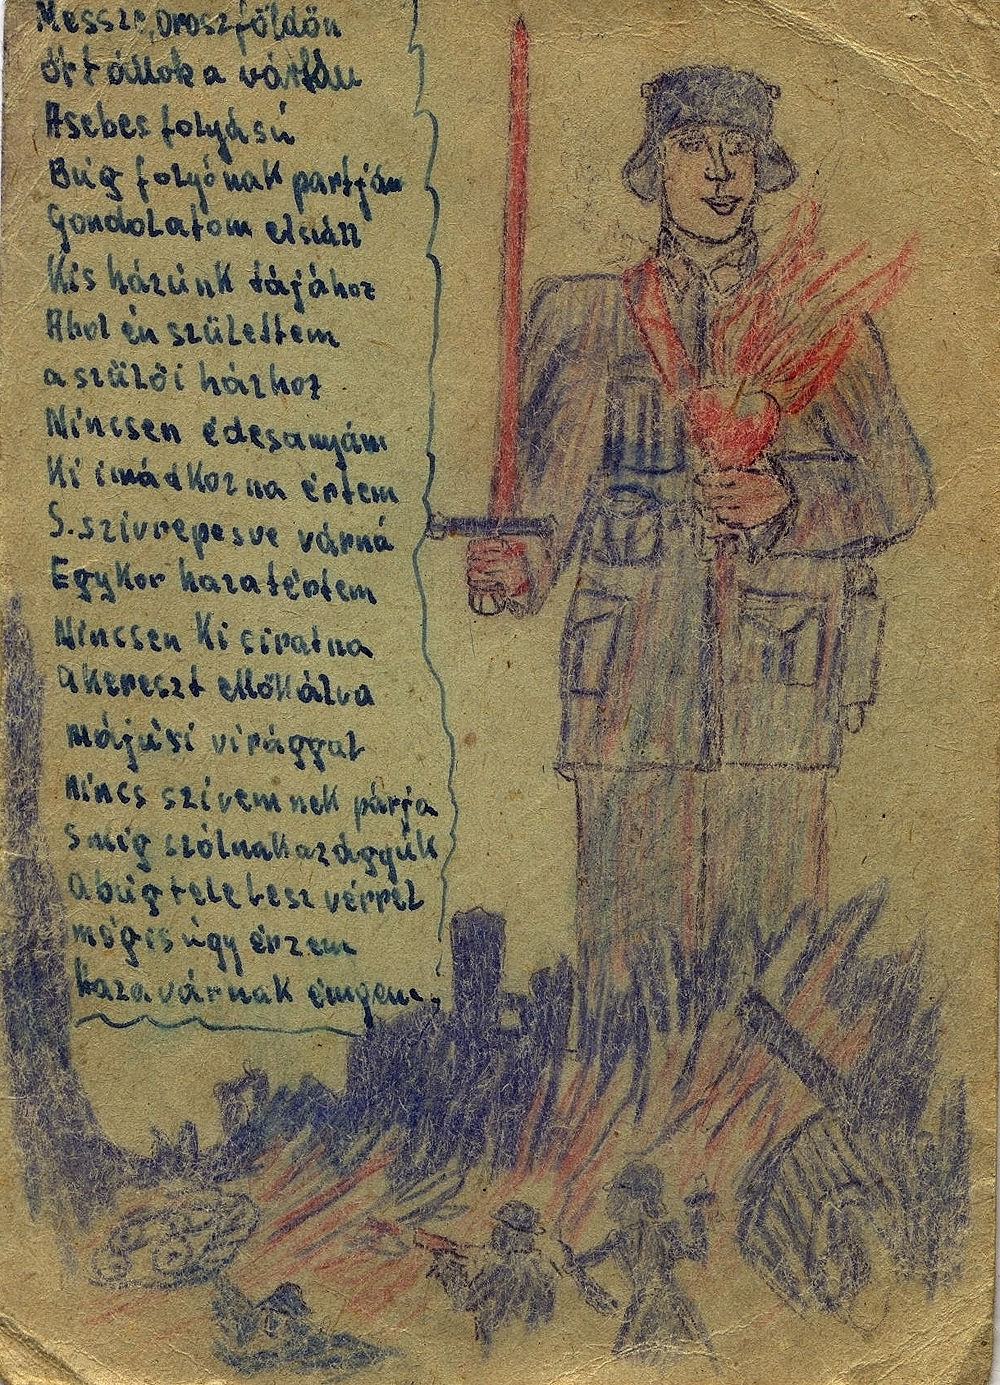 Messze, oroszföldön
őrt állok a vártán
Asebes folyású
Búg folyónak partján
Gondolatom elszáll
Kis házunk tájához
Ahol én születtem
a szülői házhoz
Nincsen édesanyám
Ki imádkozna értem
S. szivrepesve várná
Egykor hazatértem
Nincsen Ki siratna
a Kereszt
májusi virággal
nincs szivemnek párja
S mig szólnak az ágyúk
a búg tele lesz vérrel
mégis úgy érzem
haza várnak éngem.